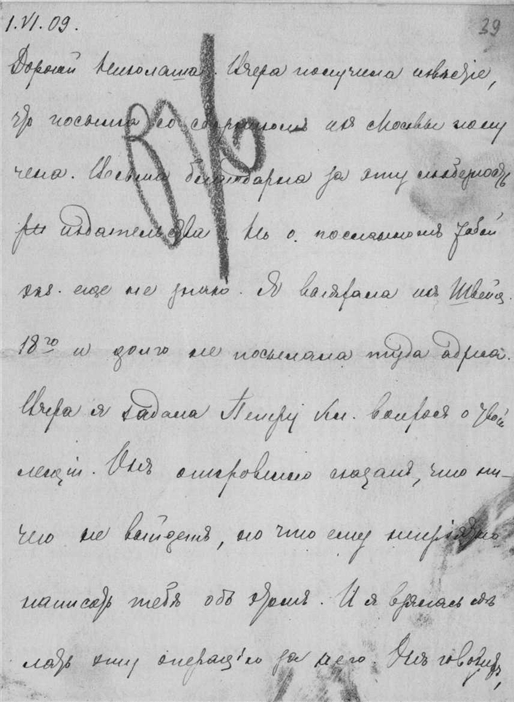 1.VI.09.
39
Дорогой Николаша. Вчера получила извѣстіе,
что посылка со сборникомъ изъ Москвы полу
чена. Весьма благодарна за эту любезность
издательства. Но о посланномъ Тобой
еще не знаю. Я выѣхала изъ Швейц.
18го и долго не посылала туда адреса.
Вчера я задала Петру Кн. вопросъ о твоей
лекціи. Онъ откровенно сказалъ, что ни-
чего не выйдетъ, но что ему непріятно
написать тебѣ объ этомъ. И я взялась сдѣ
лать эту операцію за него. Онъ говоритъ,